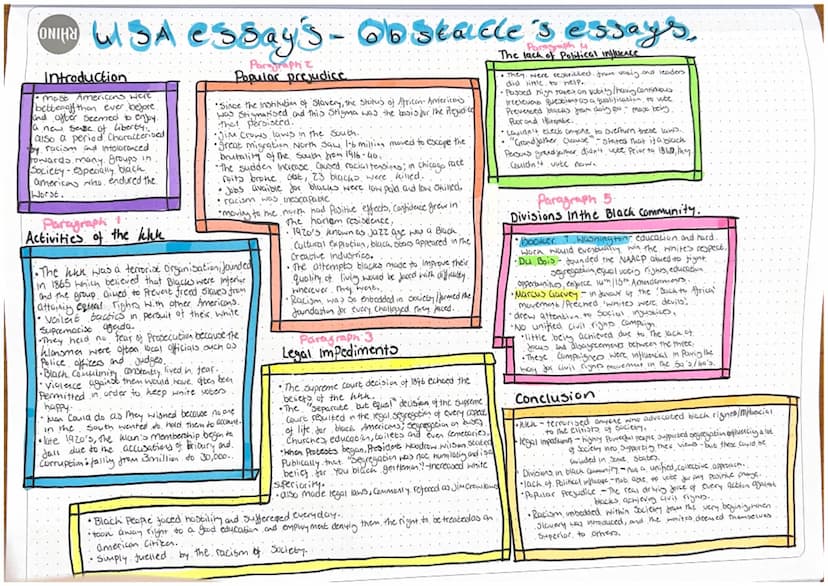 RHINO
USA essay's - obstacle's essays.
Introduction
• Most Americans were
better off than ever before
and after seemed to enjoy
a new sense of liberty,
also a period characterised
by racism and intolerance
towards many groups in
Society - especially black
Americans who endured the
worst.
Paragraph 1
Activities of the KKK
• The KKK was a terrorist organisation, founded
in 1865 which believed that Blacks were inferior
and the group aimed to prevent freed slaves from
attaining equal rights with other Americans.
• Violent tactics in pursuit of their white
supremacist agenda.
• They held no fear of prosecution because the
Klansmen were often local officials such as
Police officers and judges.
• Black community constantly lived in fear.
• Violence against them would have often been
permitted in order to keep white voters
happy.
• KKK could do as they wished because no one
in the South wanted to hold them to account.
• late 1920's, the Klan's membership began to
fall due to the accusations of bribery and
corruption: falling from 3 million to 30,000..
Paragraph 2
Popular prejudice
• Since the institution of Slavery, the status of African-Americans
was stigmatised and this stigma was the basis for the prejudice
that persisted.
• Jim Crows laws in the south.
• Great migration North saw 1.6 million moved to escape the
brutality of the south from 1916-40.
• The sudden increase caused racial tensions; in Chicago race
riots broke out, 23 blacks were killed.
• Jobs available for blacks were low paid and low skilled.
• racism was inescapable
• moving to the north had positive effects, confidence grew in
the harlem
• 1920's known as Jazz age was a Black
Cultural explosion, black stars appeared in the
creative industries.
• The attempts blacks made to improve their
quality of living would be faced with difficulty
wherever they went.
• Racism was so embedded in society / formed the
foundation for every challenge they faced.
Paragraph 3
Legal Impediments
• The supreme court decision of 1896 echoed the
beliefs of the KKK.
• The "Separate but equal" decision of the supreme
court resulted in the legal segregation of every aspect
of life for black Americans; segregation on buses,
Churches, education, toilets and even cemeteries.
• When Protests began, President Woodrow Wilson said
Publically that "Segregation was not humiliating and is a
belief for you black gentleman" - increased white
superiority.
• also made legal laws, commonly referred as Jim Crow laws
• Black People faced hostility and suffered everyday.
• took away right to a good education and employment denying them, the right to be treated as an
American citizen.
• Simply fuelled by the racism of Society.
Paragraph 4
The lack of Political Influence
• They were restricted from voting and leaders
did little to help.
• Passed high taxes on voting / having
irrelevant questions as a qualification to vote
Prevented blacks from doing so - most being
Poor and illiterate.
• Couldn't elect anyone to overturn these laws.
• "Grandfather Clause" - stated that if a black
Persons grandfather didn't vote prior to they
couldn't vote now.
Paragraph 5
Divisions in the Black community.
• Booker T Washington - education and hard
work would eventually win the white's respect.
• Du Bois - founded the NAACP aimed to fight
segregation, equal voting rights, education
opportunities, enforce 14th/15th Amendments.
• Marcus Garvey - in favour of the 'Back to Africa'
movement / Preached 'whites were devils'.
drew attention to Social injustices.
• No unified civil rights campaign
• little being achieved due to the lack of
focus and disagreements between the three.
• These campaigners were influential in Paving the
way for civil rights movement in the 50's/60's.
Conclusion
• KKK - terrorised anyone who advocated black rights /
to the elitists of society.
• legal impediments - highly powerful people supported segregation influencing a lot
of society into supporting their views - but these could be
avoided in some states.
• Divisions in black community - not a unified, collective approach.
• lack of Political influence - not able to vote for any positive change.
• Popular Prejudice - The real driving force of every action against
blacks achieving civil rights.
• Racism imbedded within Society from the very beginning when
slavery was introduced, and the whites deemed themselves
Superior to others.